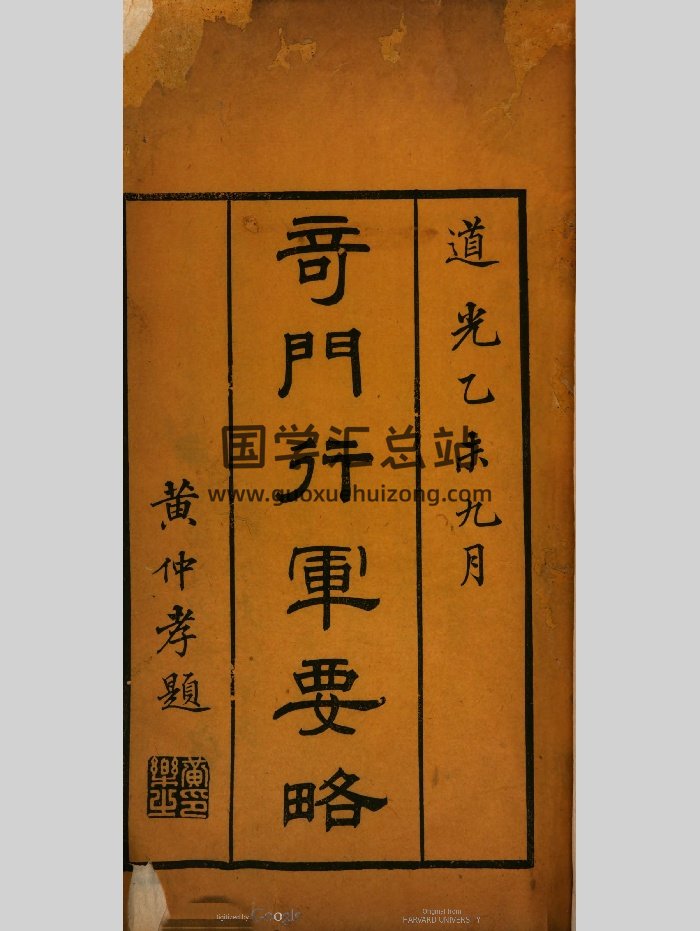 道光乙未九月
奇門行軍要略
黄仲孝題
国学汇总站
www.guoxuehuizong.com
Digitized by Google
Original from
HARVARD UNIVERSITY